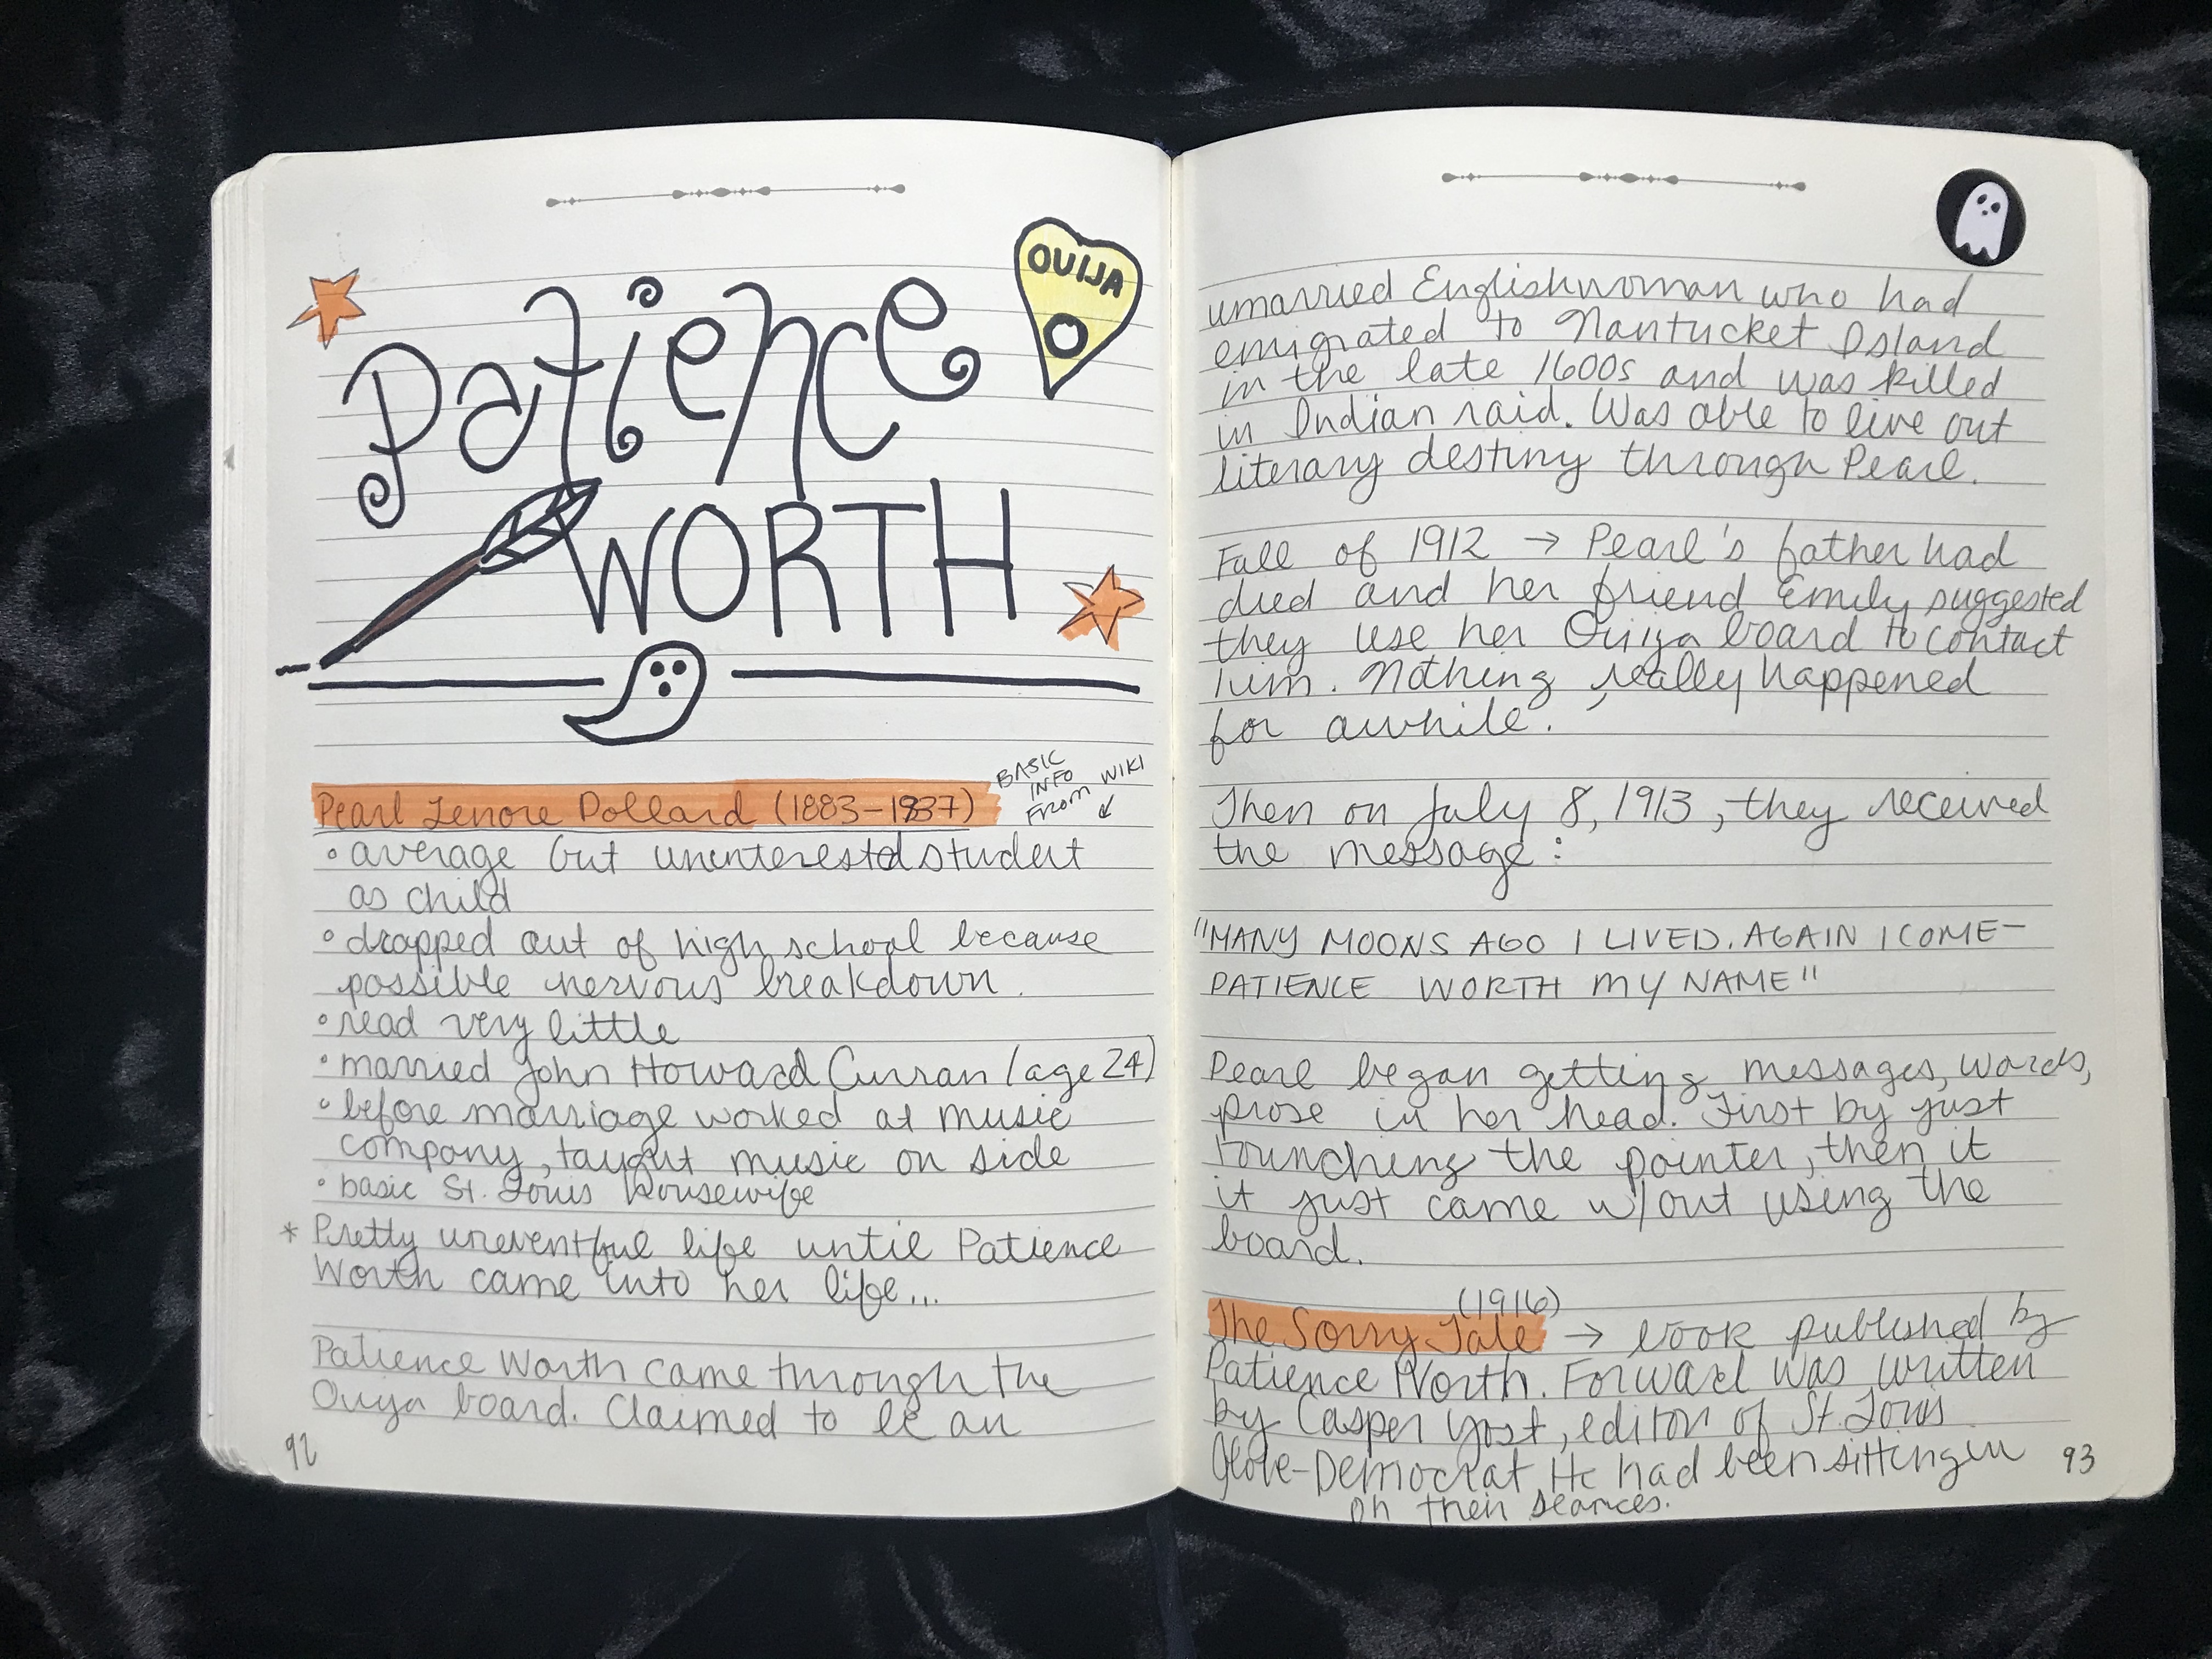 Patience
WORTH
OUIJA
Pearl Lenore Pollard (1883-1937)
BASIC
INFO
FROM WIKI
• average but uninterested student
as child
• dropped out of high school because
possible nervous breakdown.
• read very little
• married John Howard Curran (age 24)
• before marriage worked at music
company, taught music on side
• basic St. Louis housewife
* Pretty uneventful life until Patience
Worth came into her life...
Patience Worth came through the
Ouija board. Claimed to be an
92
umarried Englishwoman who had
emigrated to Nantucket Island
in the late 1600s and was killed
in Indian raid. Was able to live out
literary destiny through Pearl.
Fall of 1912 → Pearl's father had
died and her friend Emily suggested
they use her Ouija board to contact
him. Nothing really happened
for awhile.
Then on July 8, 1913, they received
the message:
"MANY MOONS AGO I LIVED. AGAIN I COME-
PATIENCE WORTH MY NAME"
Pearl began getting messages, words,
prose in her head. First by just
tounching the pointer, then it
it just came w/out using the
board.
(1916)
The Sorry Tale → book published by
Patience Worth. Forward was written
by Casper Yost, editor of St. Louis
Globe-Democrat. He had been sitting in
on their seances.
93